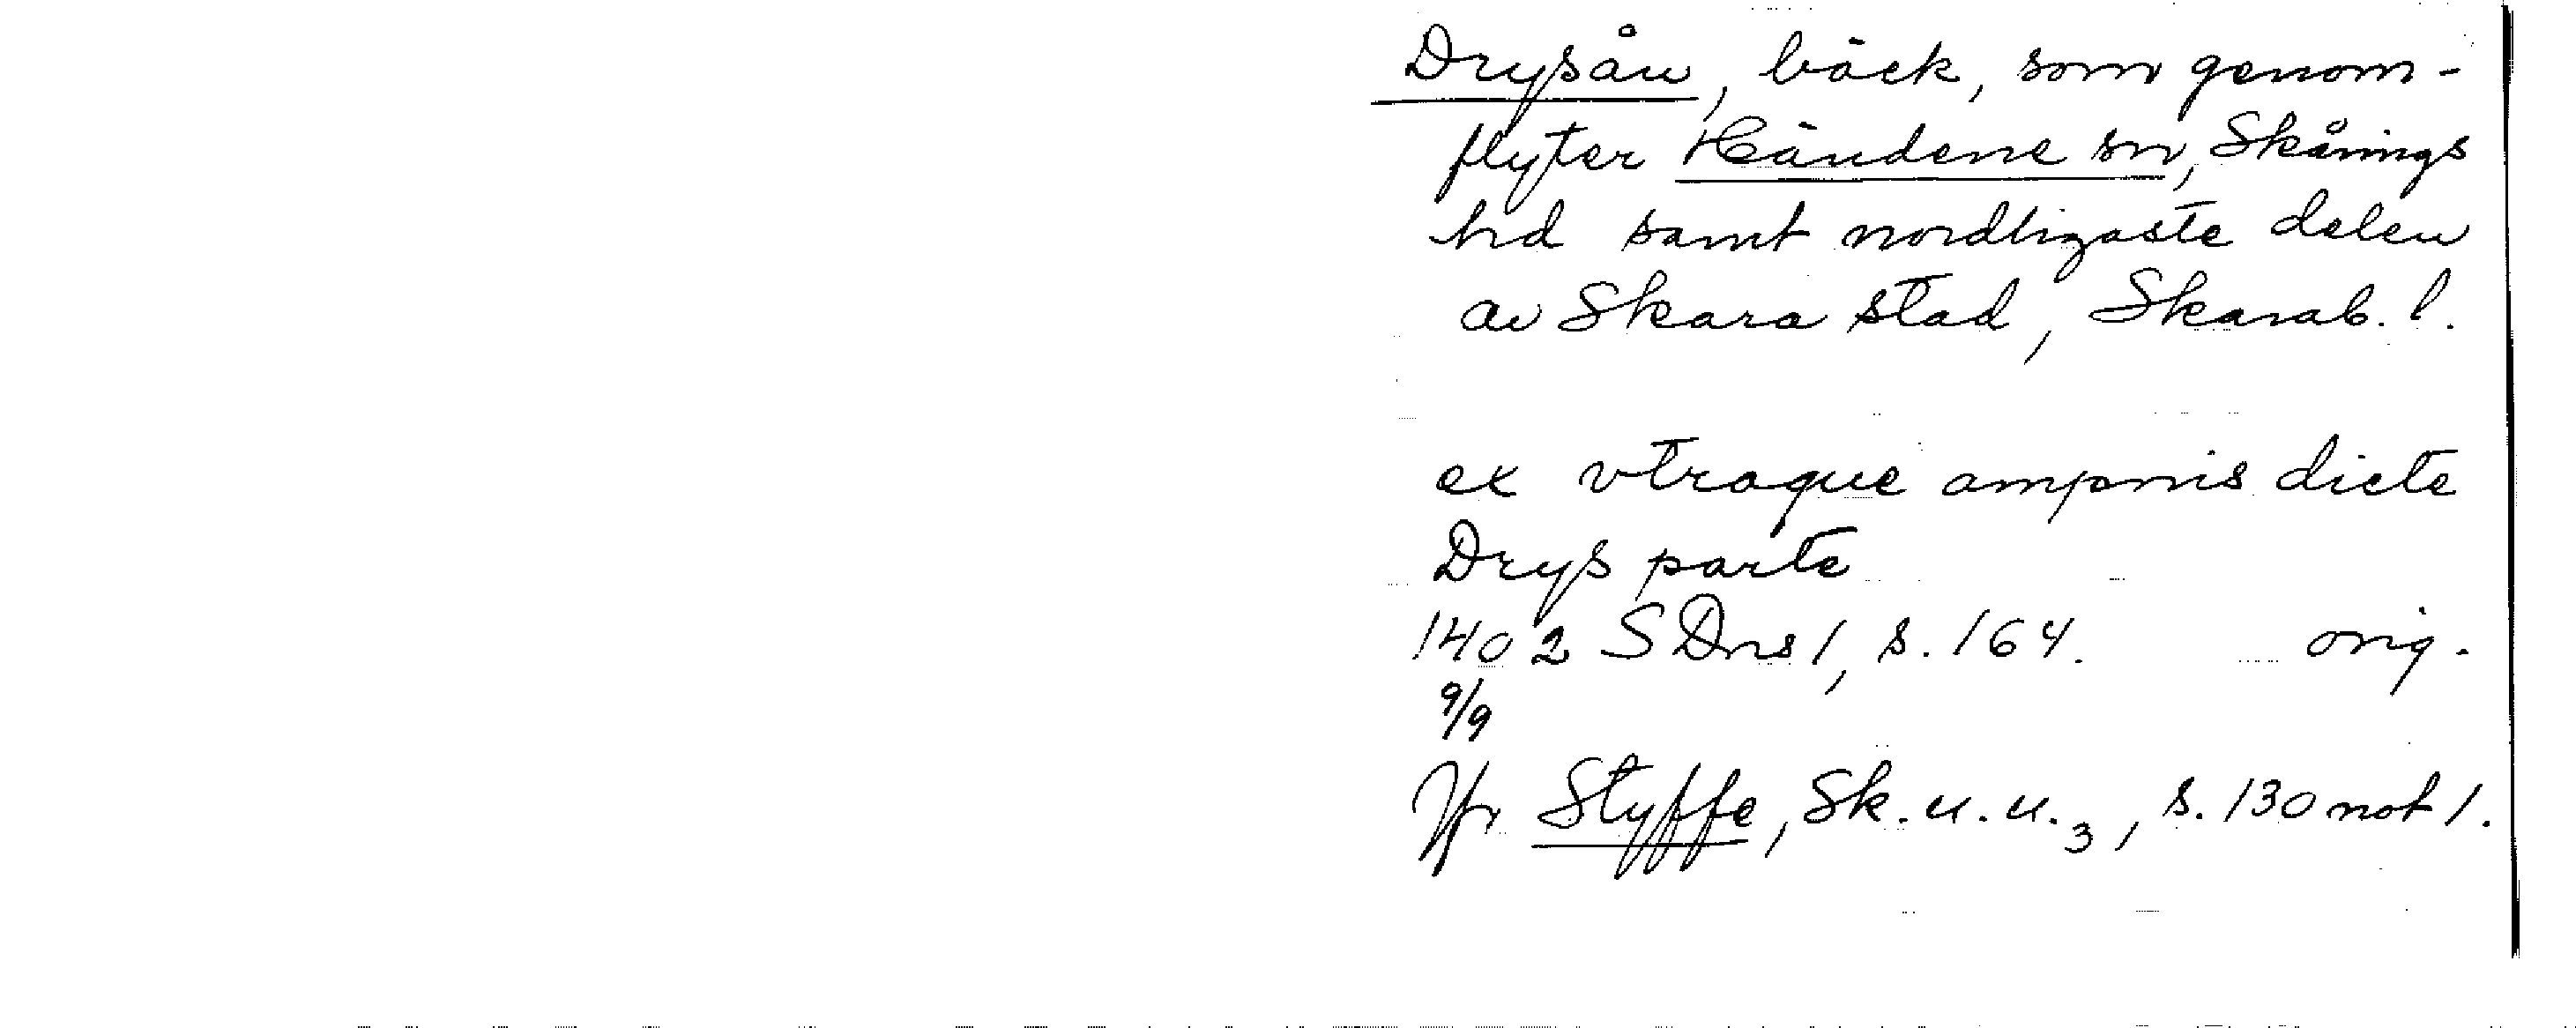 Drysån, bäck, som genom-
flyter Händene sn, Skånings
hd samt nordligaste delen
av Skara stad, Skarab. l.
ex vtraque ampnis dicte
Drys parte
1402 SDns 1, s. 164. orig.
9/9
Jfr Styffe, Sk. u. u. 3, s. 130 not 1.